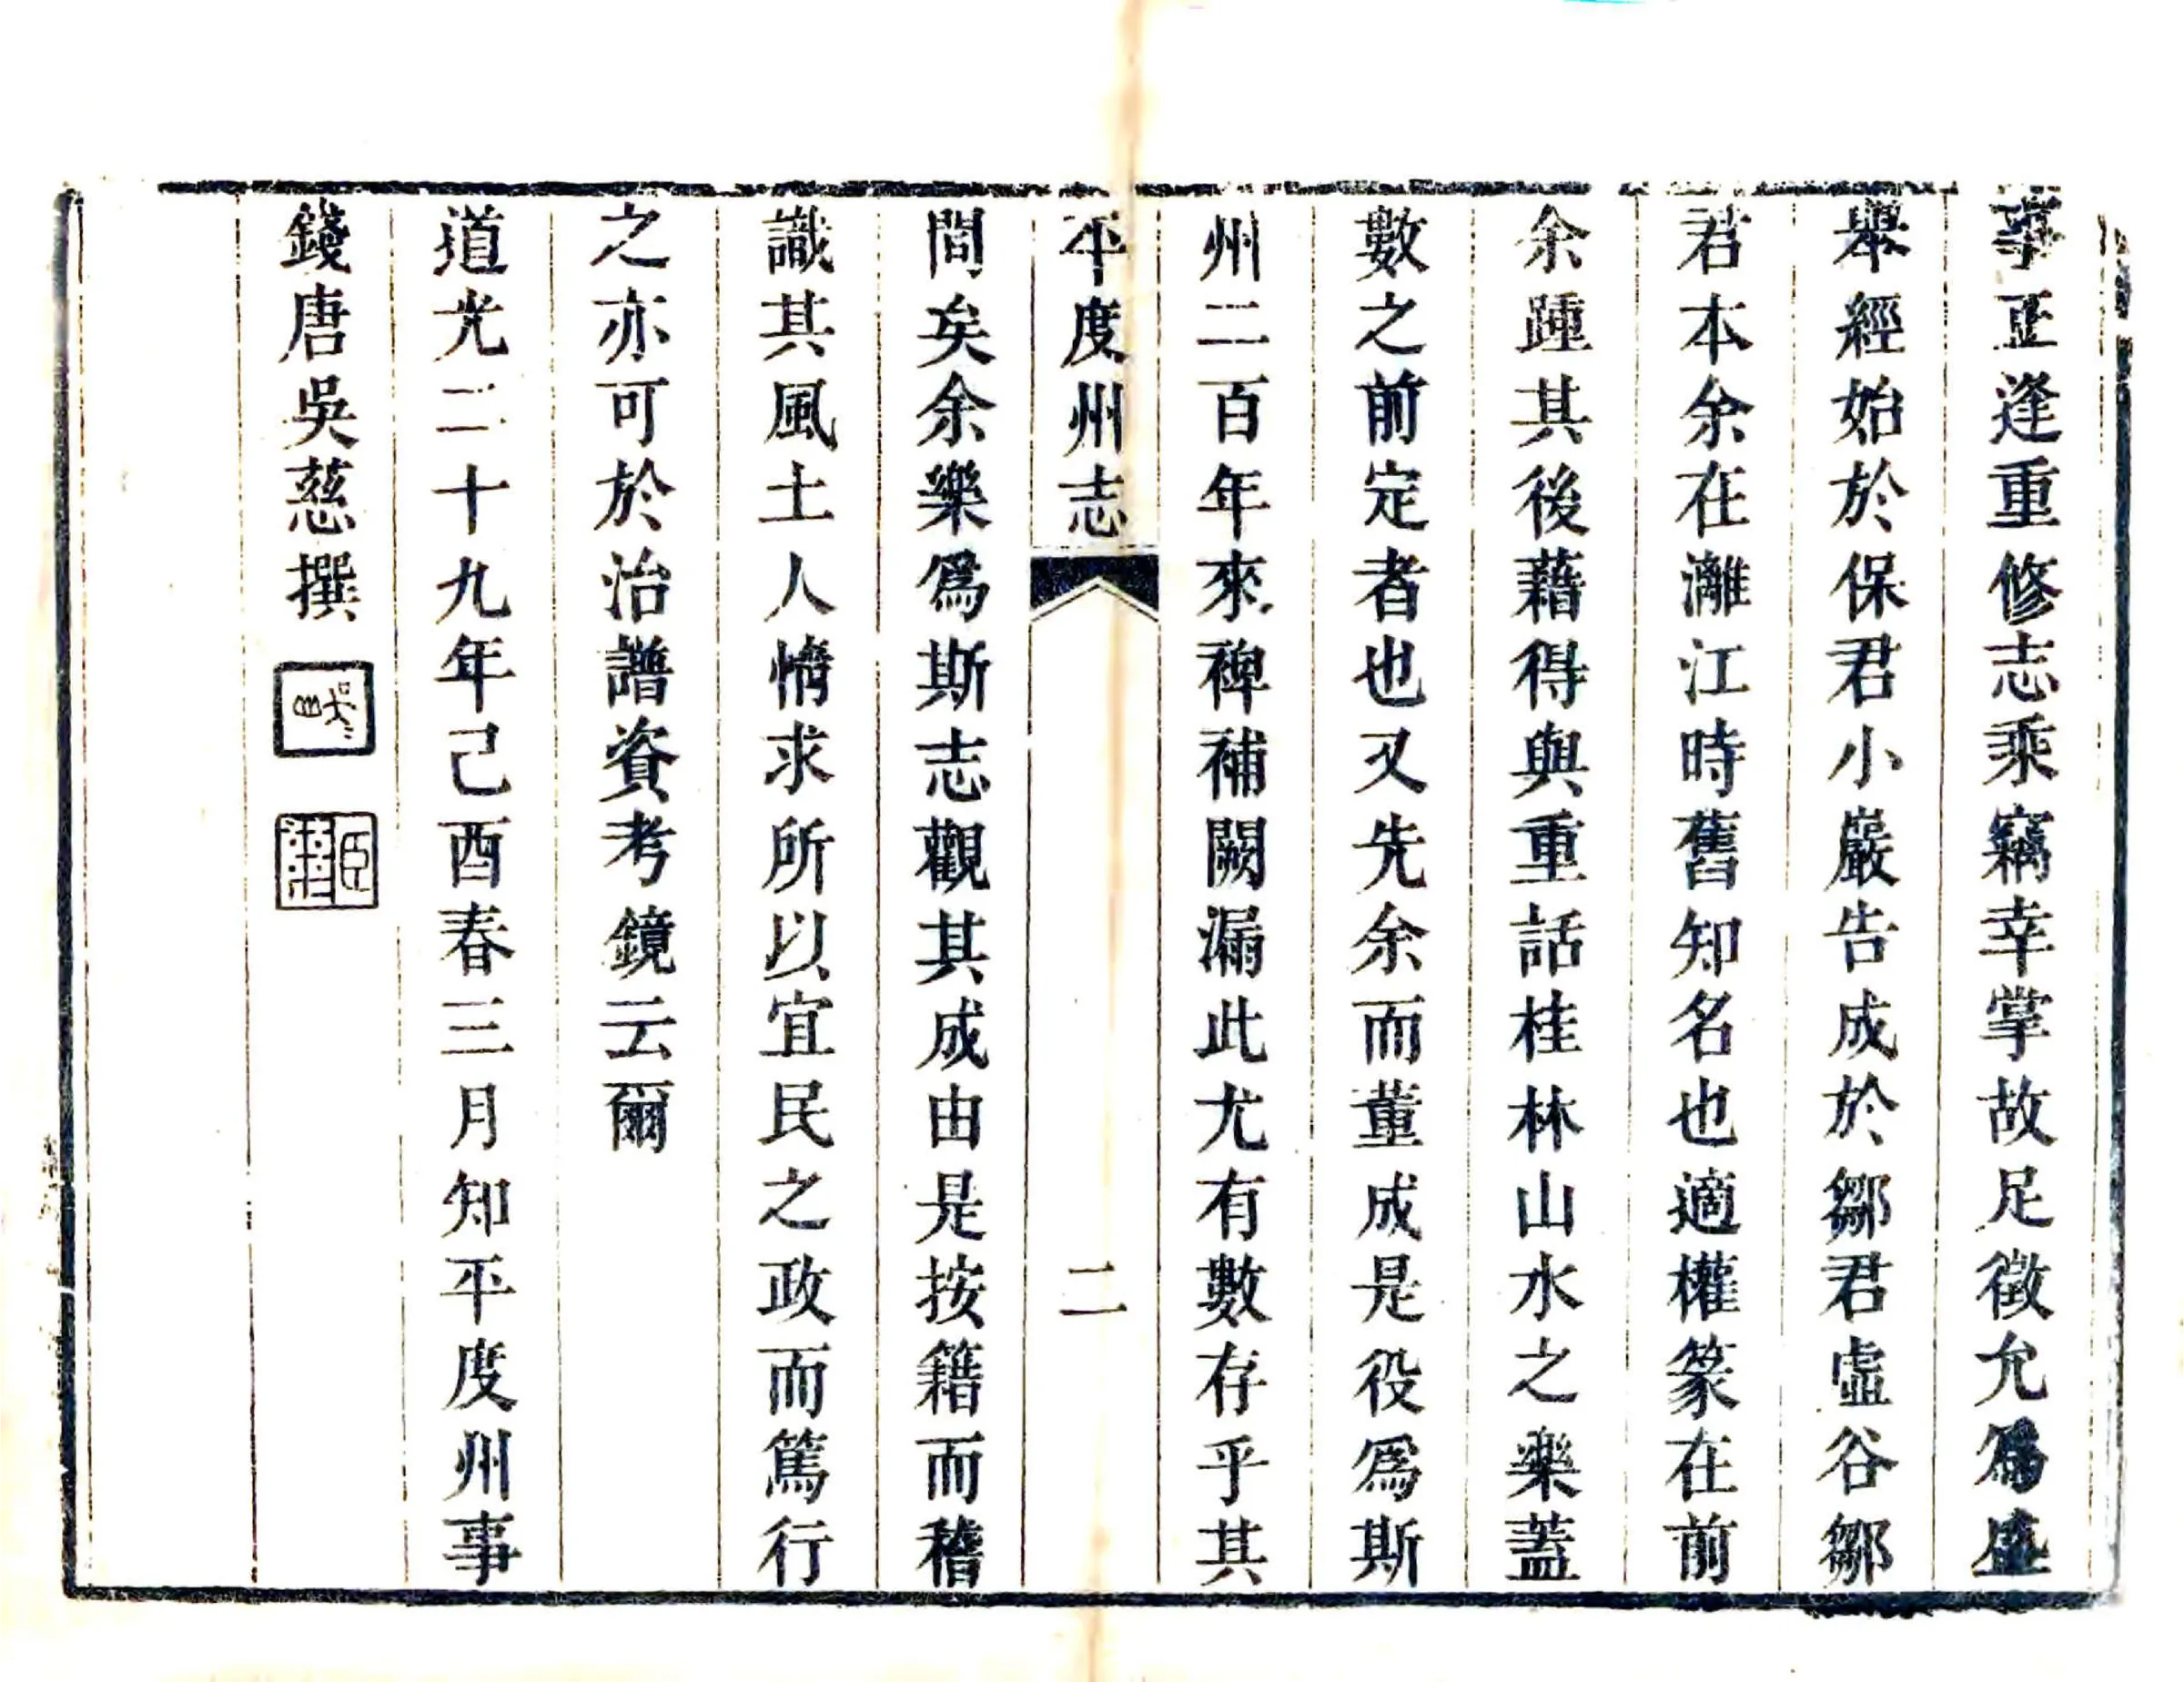 事正逢重修志乘竊幸掌故足徵允爲盛
舉經始於保君小巖告成於鄒君虛谷鄒
君本余在灕江時舊知名也適權篆在前
余踵其後藉得與重話桂林山水之樂蓋
數之前定者也又先余而董成是役爲斯
州二百年來裨補闕漏此尤有數存乎其
平度州志
二
間矣余樂爲斯志觀其成由是按籍而稽
識其風土人情求所以宜民之政而篤行
之亦可於治譜資考鏡云爾
道光二十九年己酉春三月知平度州事
錢唐吳慈撰